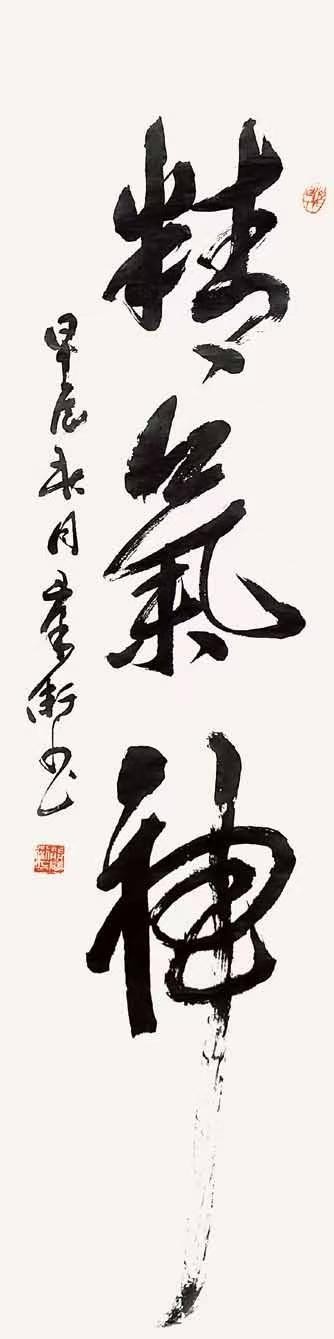 精氣神
甲辰秋月 書